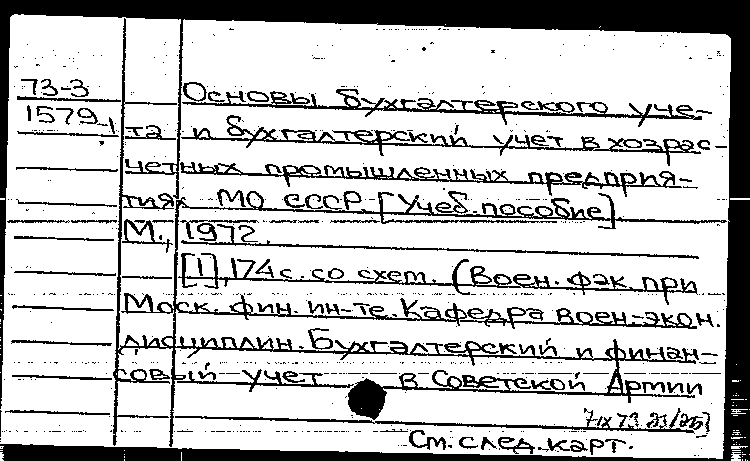 73-3
1579
Основы бухгалтерского уче-
та и бухгалтерский учет в хозрас-
четных промышленных предприя-
тиях МО СССР. [Учеб. пособие].
М., 1972.
[1], 174 с. со схем. (Воен. фак. при
Моск. фин. ин-те. Кафедра воен.-экон.
дисциплин. Бухгалтерский и финан-
совый учет в Советской Армии
См. след. карт.